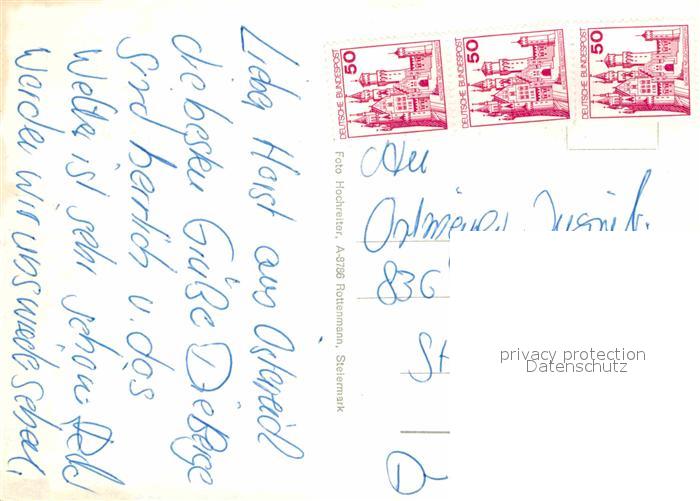 DEUTSCHE BUNDESPOST 50
DEUTSCHE BUNDESPOST 50
DEUTSCHE BUNDESPOST 50
Lieber Horst aus Österreich
die besten Grüße Die Berge
sind herrlich u. das
Wetter ist sehr schön.
werden wir uns wieder sehen.
Foto Hochreiter, A-8786 Rottenmann, Steiermark
An
836
St
D
privacy protection
Datenschutz